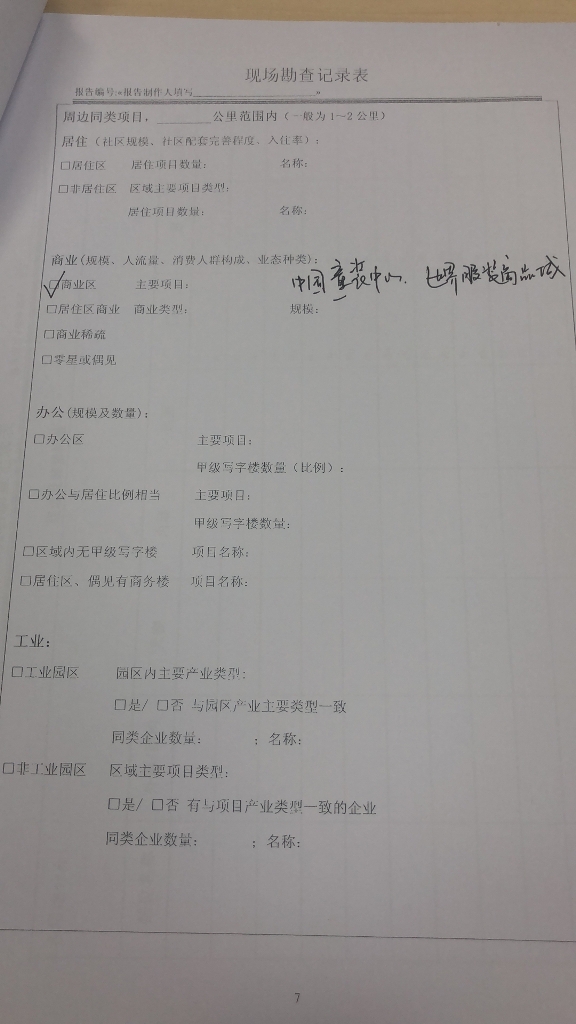 现场勘查记录表
报告编号:«报告制作人填写________________________»
周边同类项目，________公里范围内（一般为1～2公里）
居住（社区规模、社区配套完善程度、入住率）：
□居住区 居住项目数量： 名称：
□非居住区 区域主要项目类型：
居住项目数量： 名称：
商业(规模、人流量、消费人群构成、业态种类)：
☑商业区 主要项目： 中国童装中心、世界服装商品城
□居住区商业 商业类型： 规模：
□商业稀疏
□零星或偶见
办公(规模及数量)；
□办公区 主要项目：
甲级写字楼数量（比例）：
□办公与居住比例相当 主要项目：
甲级写字楼数量：
□区域内无甲级写字楼 项目名称：
□居住区、偶见有商务楼 项目名称：
工业：
□工业园区 园区内主要产业类型：
□是/ □否 与园区产业主要类型一致
同类企业数量： ；名称：
□非工业园区 区域主要项目类型：
□是/ □否 有与项目产业类型一致的企业
同类企业数量： ；名称：
7